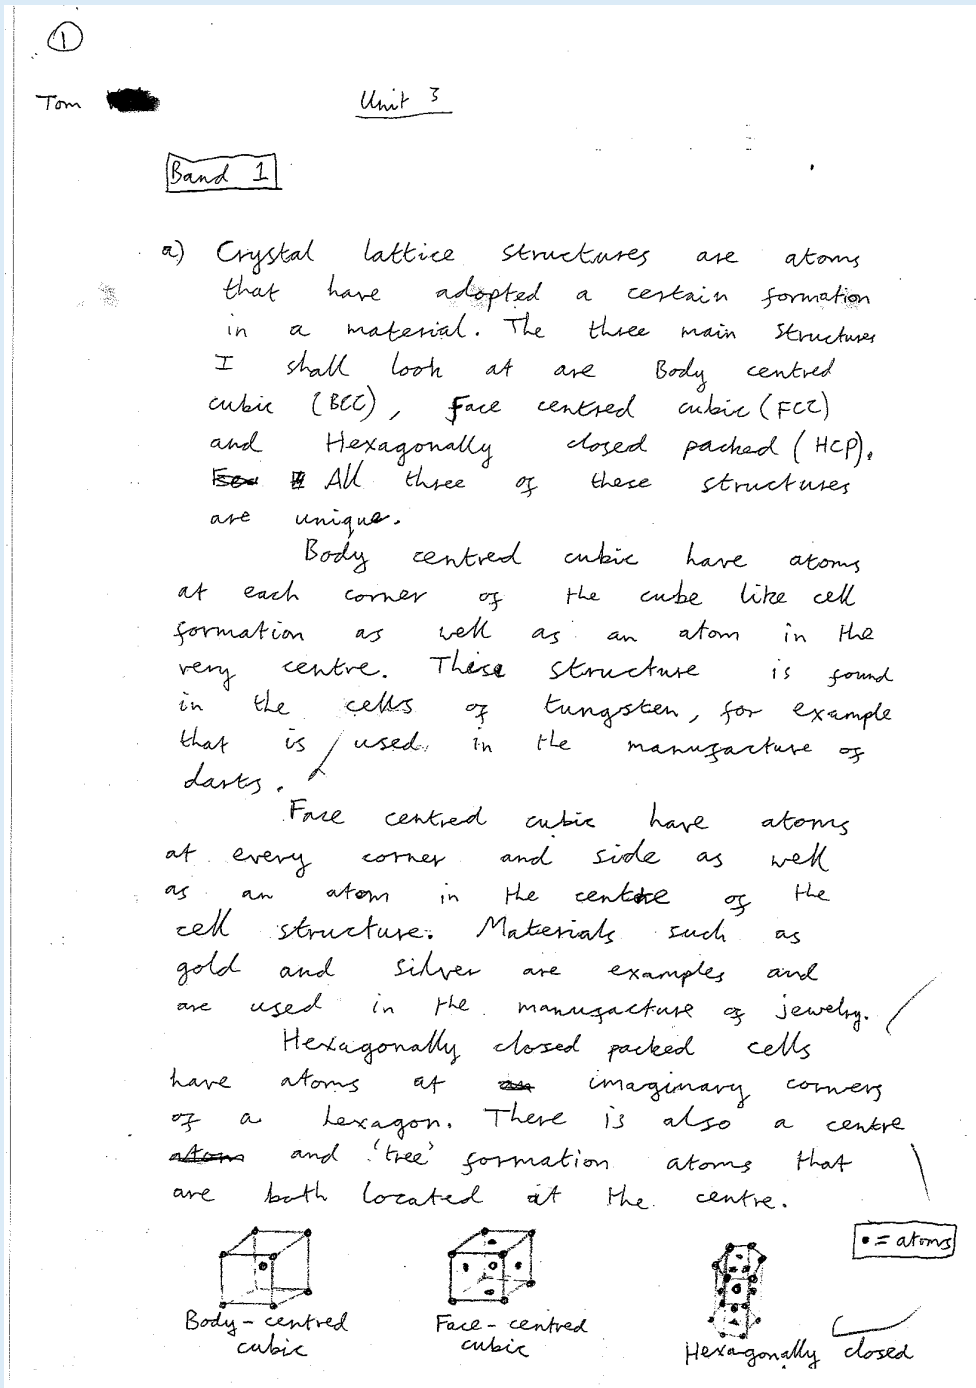 1
Tom
Unit 3
Band 1
a) Crystal lattice structures are atoms
that have adopted a certain formation
in a material. The three main structures
I shall look at are Body centred
cubic (BCC), Face centred cubic (FCC)
and Hexagonally closed packed (HCP).
All three of these structures
are unique.
Body centred cubic have atoms
at each corner of the cube like cell
formation as well as an atom in the
very centre. These structure is found
in the cells of tungsten, for example
that is used in the manufacture of
darts.
Face centred cubic have atoms
at every corner and side as well
as an atom in the centre of the
cell structure. Materials such as
gold and silver are examples and
are used in the manufacture of jewelry.
Hexagonally closed packed cells
have atoms at imaginary corners
of a hexagon. There is also a centre
atom and 'tree' formation atoms that
are both located at the centre.
• = atoms
Body-centred
cubic
Face-centred
cubic
Hexagonally closed